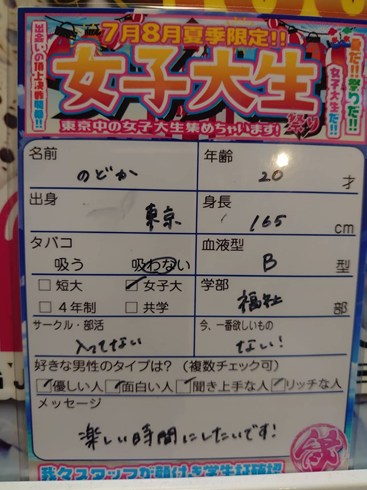 7月8月夏季限定!!
出会いの頂上決戦
女子大生
祭り
夏だ!!祭りだ!!
女子大生だ!!
東京中の女子大生集めちゃいます!
名前 のどか
年齢 20 才
出身 東京
身長 165 cm
タバコ 吸う 吸わない
血液型 B 型
□短大 ☑女子大
□4年制 □共学
学部 福祉 部
サークル・部活 入ってない
今、一番欲しいもの ない!
好きな男性のタイプは?(複数チェック可)
☑優しい人 ☑面白い人 ☑聞き上手な人 ☑リッチな人
メッセージ
楽しい時間にしたいです!
祭